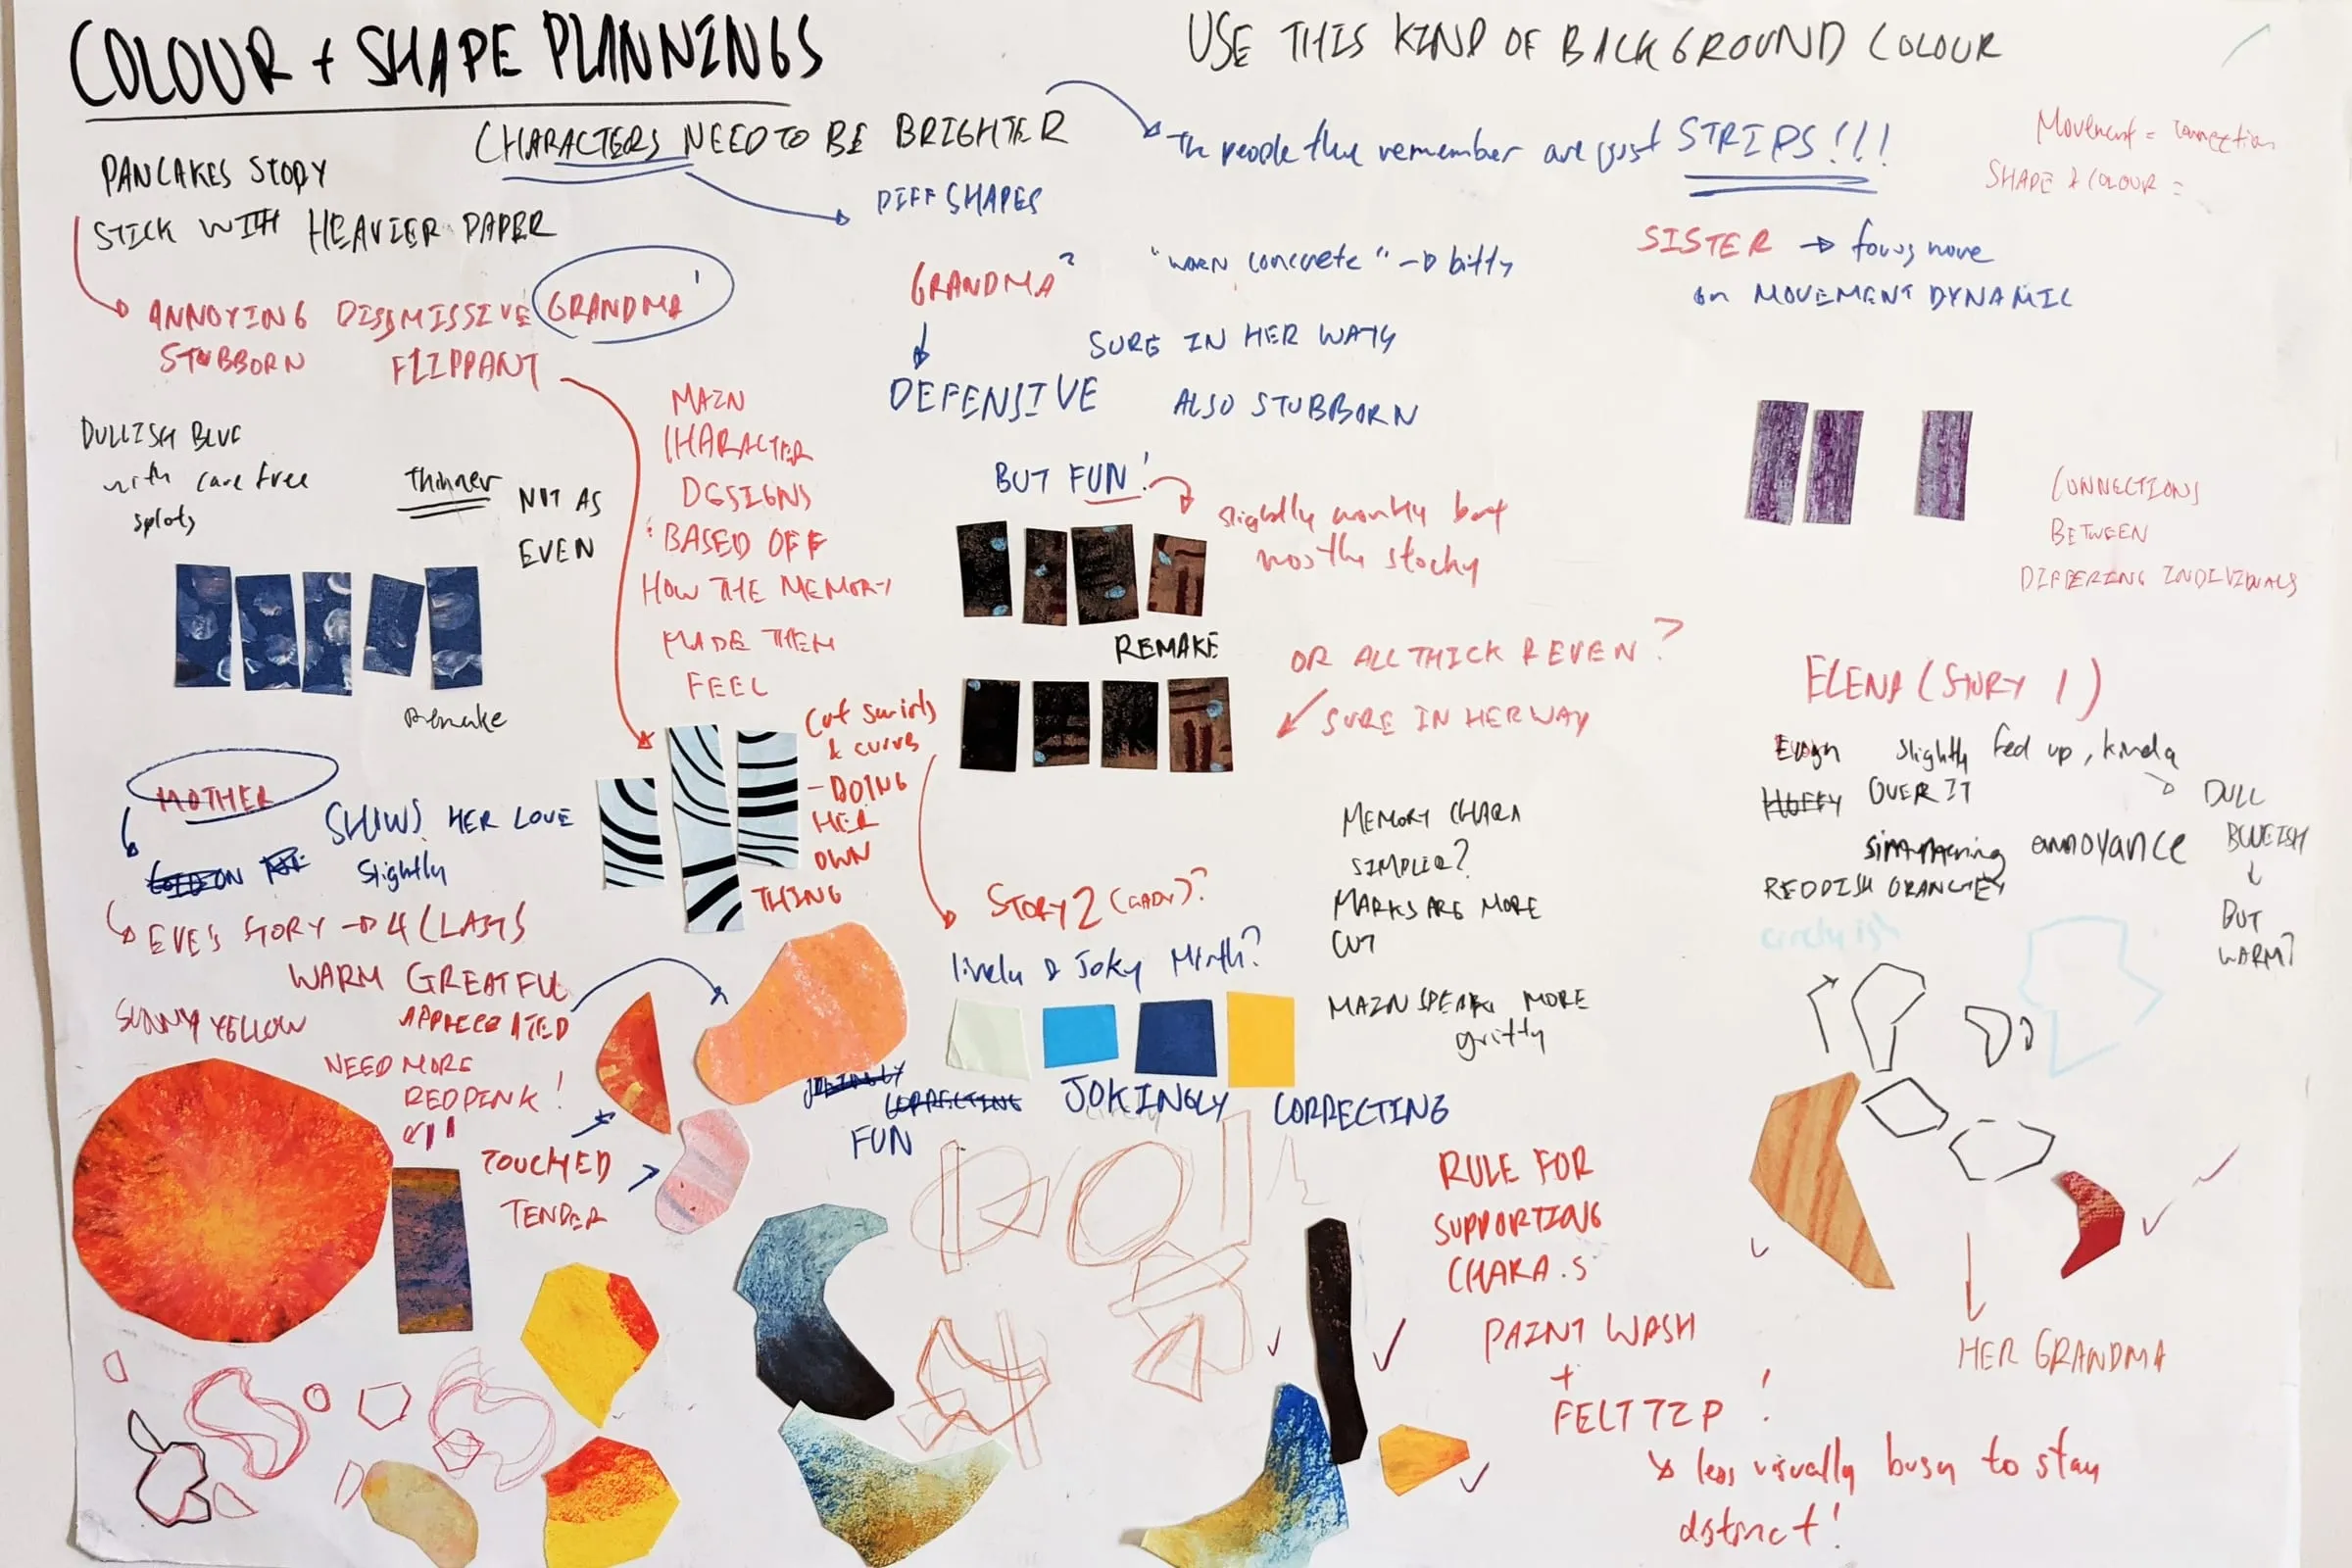 COLOUR + SHAPE PLANNINGS
USE THIS KIND OF BACKGROUND COLOUR
CHARACTERS NEED TO BE BRIGHTER
The people they remember are just STRIPS!!!
Movement = connection
SHAPE & COLOUR =
PANCAKES STORY
STICK WITH HEAVIER PAPER
DIFF SHAPES
ANNOYING DISSMISSIVE GRANDMA 1
STUBBORN FLIPPANT
GRANDMA 2
"worn concrete" → bitty
SURE IN HER WAYS
DEFENSIVE
ALSO STUBBORN
BUT FUN!
slightly wonky but
mostly stocky
SISTER → focus more
on MOVEMENT DYNAMIC
DULLISH BLUE
with care free
splots
Thinner
NOT AS
EVEN
Remake
MAIN
CHARACTER
DESIGNS
BASED OFF
HOW THE MEMORY
MADE THEM
FEEL
REMAKE
OR ALL THICK & EVEN?
SURE IN HER WAY
CONNECTIONS
BETWEEN
DIFFERING INDIVIDUALS
MOTHER
SHOWS HER LOVE
slightly
EVE'S STORY → 4 (LAST)
WARM GREATFUL
SUNNY YELLOW
APPRECIATED
NEED MORE
RED PINK!
TOUCHED
TENDER
Cut swirls
& curves
- DOING
HER
OWN
THING
STORY 2 (GABY)?
lively & Joky Mirth?
CORRECTING
JOKINGLY CORRECTING
FUN
MEMORY CHARA
SIMPLER?
MARKS ARE MORE
CUT
MAIN SPEAK. MORE
gritty
RULE FOR
SUPPORTING
CHARA.S
PAINT WASH
+
FELT TIP!
less visually busy to stay
distinct!
ELENA (STORY 1)
slightly fed up, kinda
HUFFY OVER IT
simmering annoyance
REDDISH ORANGEY
circly ish
DULL
BLUEISH
BUT
WARM?
HER GRANDMA